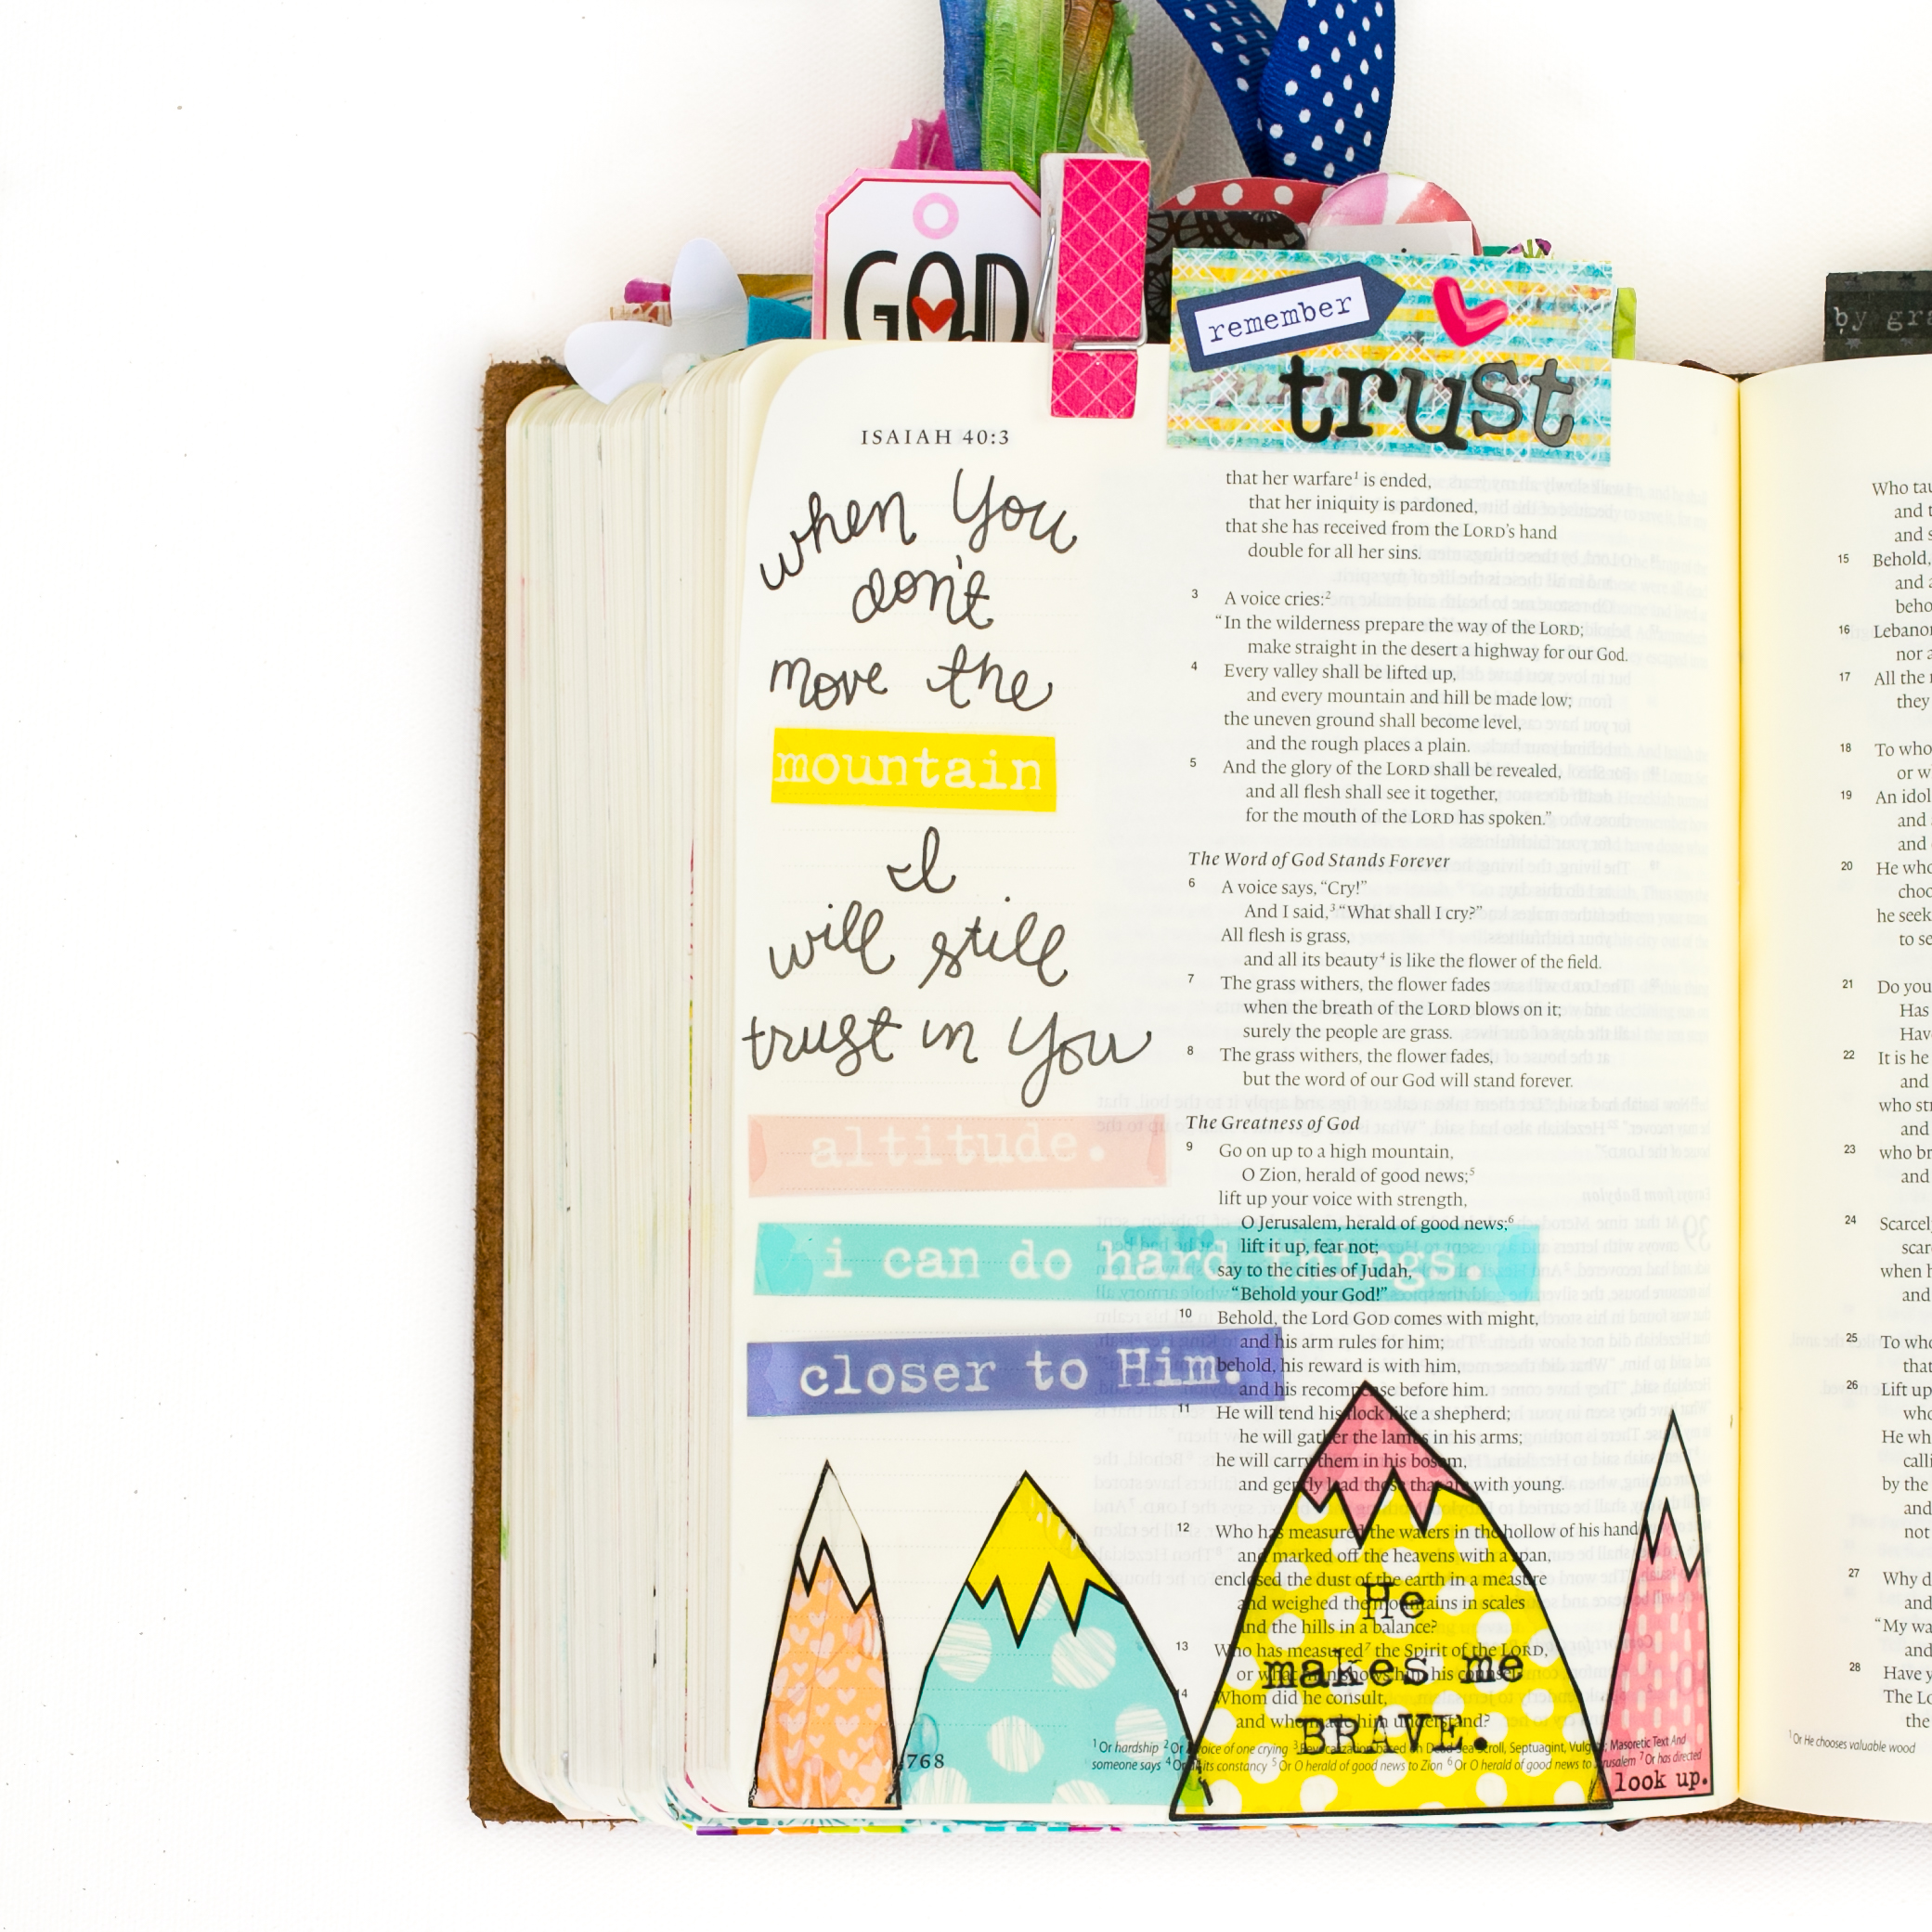 GOD
remember
trust
by gra
ISAIAH 40:3
when You
don't
move the
mountain
I
will still
trust in You
altitude.
i can do hard things.
closer to Him.
that her warfare¹ is ended,
that her iniquity is pardoned,
that she has received from the LORD's hand
double for all her sins.
3 A voice cries:²
“In the wilderness prepare the way of the LORD;
make straight in the desert a highway for our God.
4 Every valley shall be lifted up,
and every mountain and hill be made low;
the uneven ground shall become level,
and the rough places a plain.
5 And the glory of the LORD shall be revealed,
and all flesh shall see it together,
for the mouth of the LORD has spoken.”
The Word of God Stands Forever
6 A voice says, “Cry!”
And I said,³ “What shall I cry?”
All flesh is grass,
and all its beauty⁴ is like the flower of the field.
7 The grass withers, the flower fades
when the breath of the LORD blows on it;
surely the people are grass.
8 The grass withers, the flower fades,
but the word of our God will stand forever.
The Greatness of God
9 Go on up to a high mountain,
O Zion, herald of good news;⁵
lift up your voice with strength,
O Jerusalem, herald of good news;⁶
lift it up, fear not;
say to the cities of Judah,
“Behold your God!”
10 Behold, the Lord GOD comes with might,
and his arm rules for him;
behold, his reward is with him,
and his recompense before him.
11 He will tend his flock like a shepherd;
he will gather the lambs in his arms;
he will carry them in his bosom,
and gently lead those that are with young.
12 Who has measured the waters in the hollow of his hand
and marked off the heavens with a span,
enclosed the dust of the earth in a measure
and weighed the mountains in scales
and the hills in a balance?
13 Who has measured⁷ the Spirit of the LORD,
or what man shows him his counsel?
14 Whom did he consult,
and who made him understand?
He
makes me
BRAVE.
look up.
768
¹ Or hardship ² Or A voice of one crying ³ Revocalization based on Dead Sea Scroll, Septuagint, Vulgate; Masoretic Text And
someone says ⁴ Or all its constancy ⁵ Or O herald of good news to Zion ⁶ Or O herald of good news to Jerusalem ⁷ Or has directed
Who tau
and t
and s
15 Behold,
and a
beho
16 Lebanon
nor a
17 All the n
they
18 To who
or w
19 An idol
and
and
20 He who
choo
he seek
to se
21 Do you
Has
Hav
22 It is he
and
who str
and
23 who br
and
24 Scarcel
scar
when h
and
25 To who
that
26 Lift up
who
He wh
calli
by the
and
not
27 Why d
and
“My wa
and
28 Have y
The Lo
the
¹ Or He chooses valuable wood